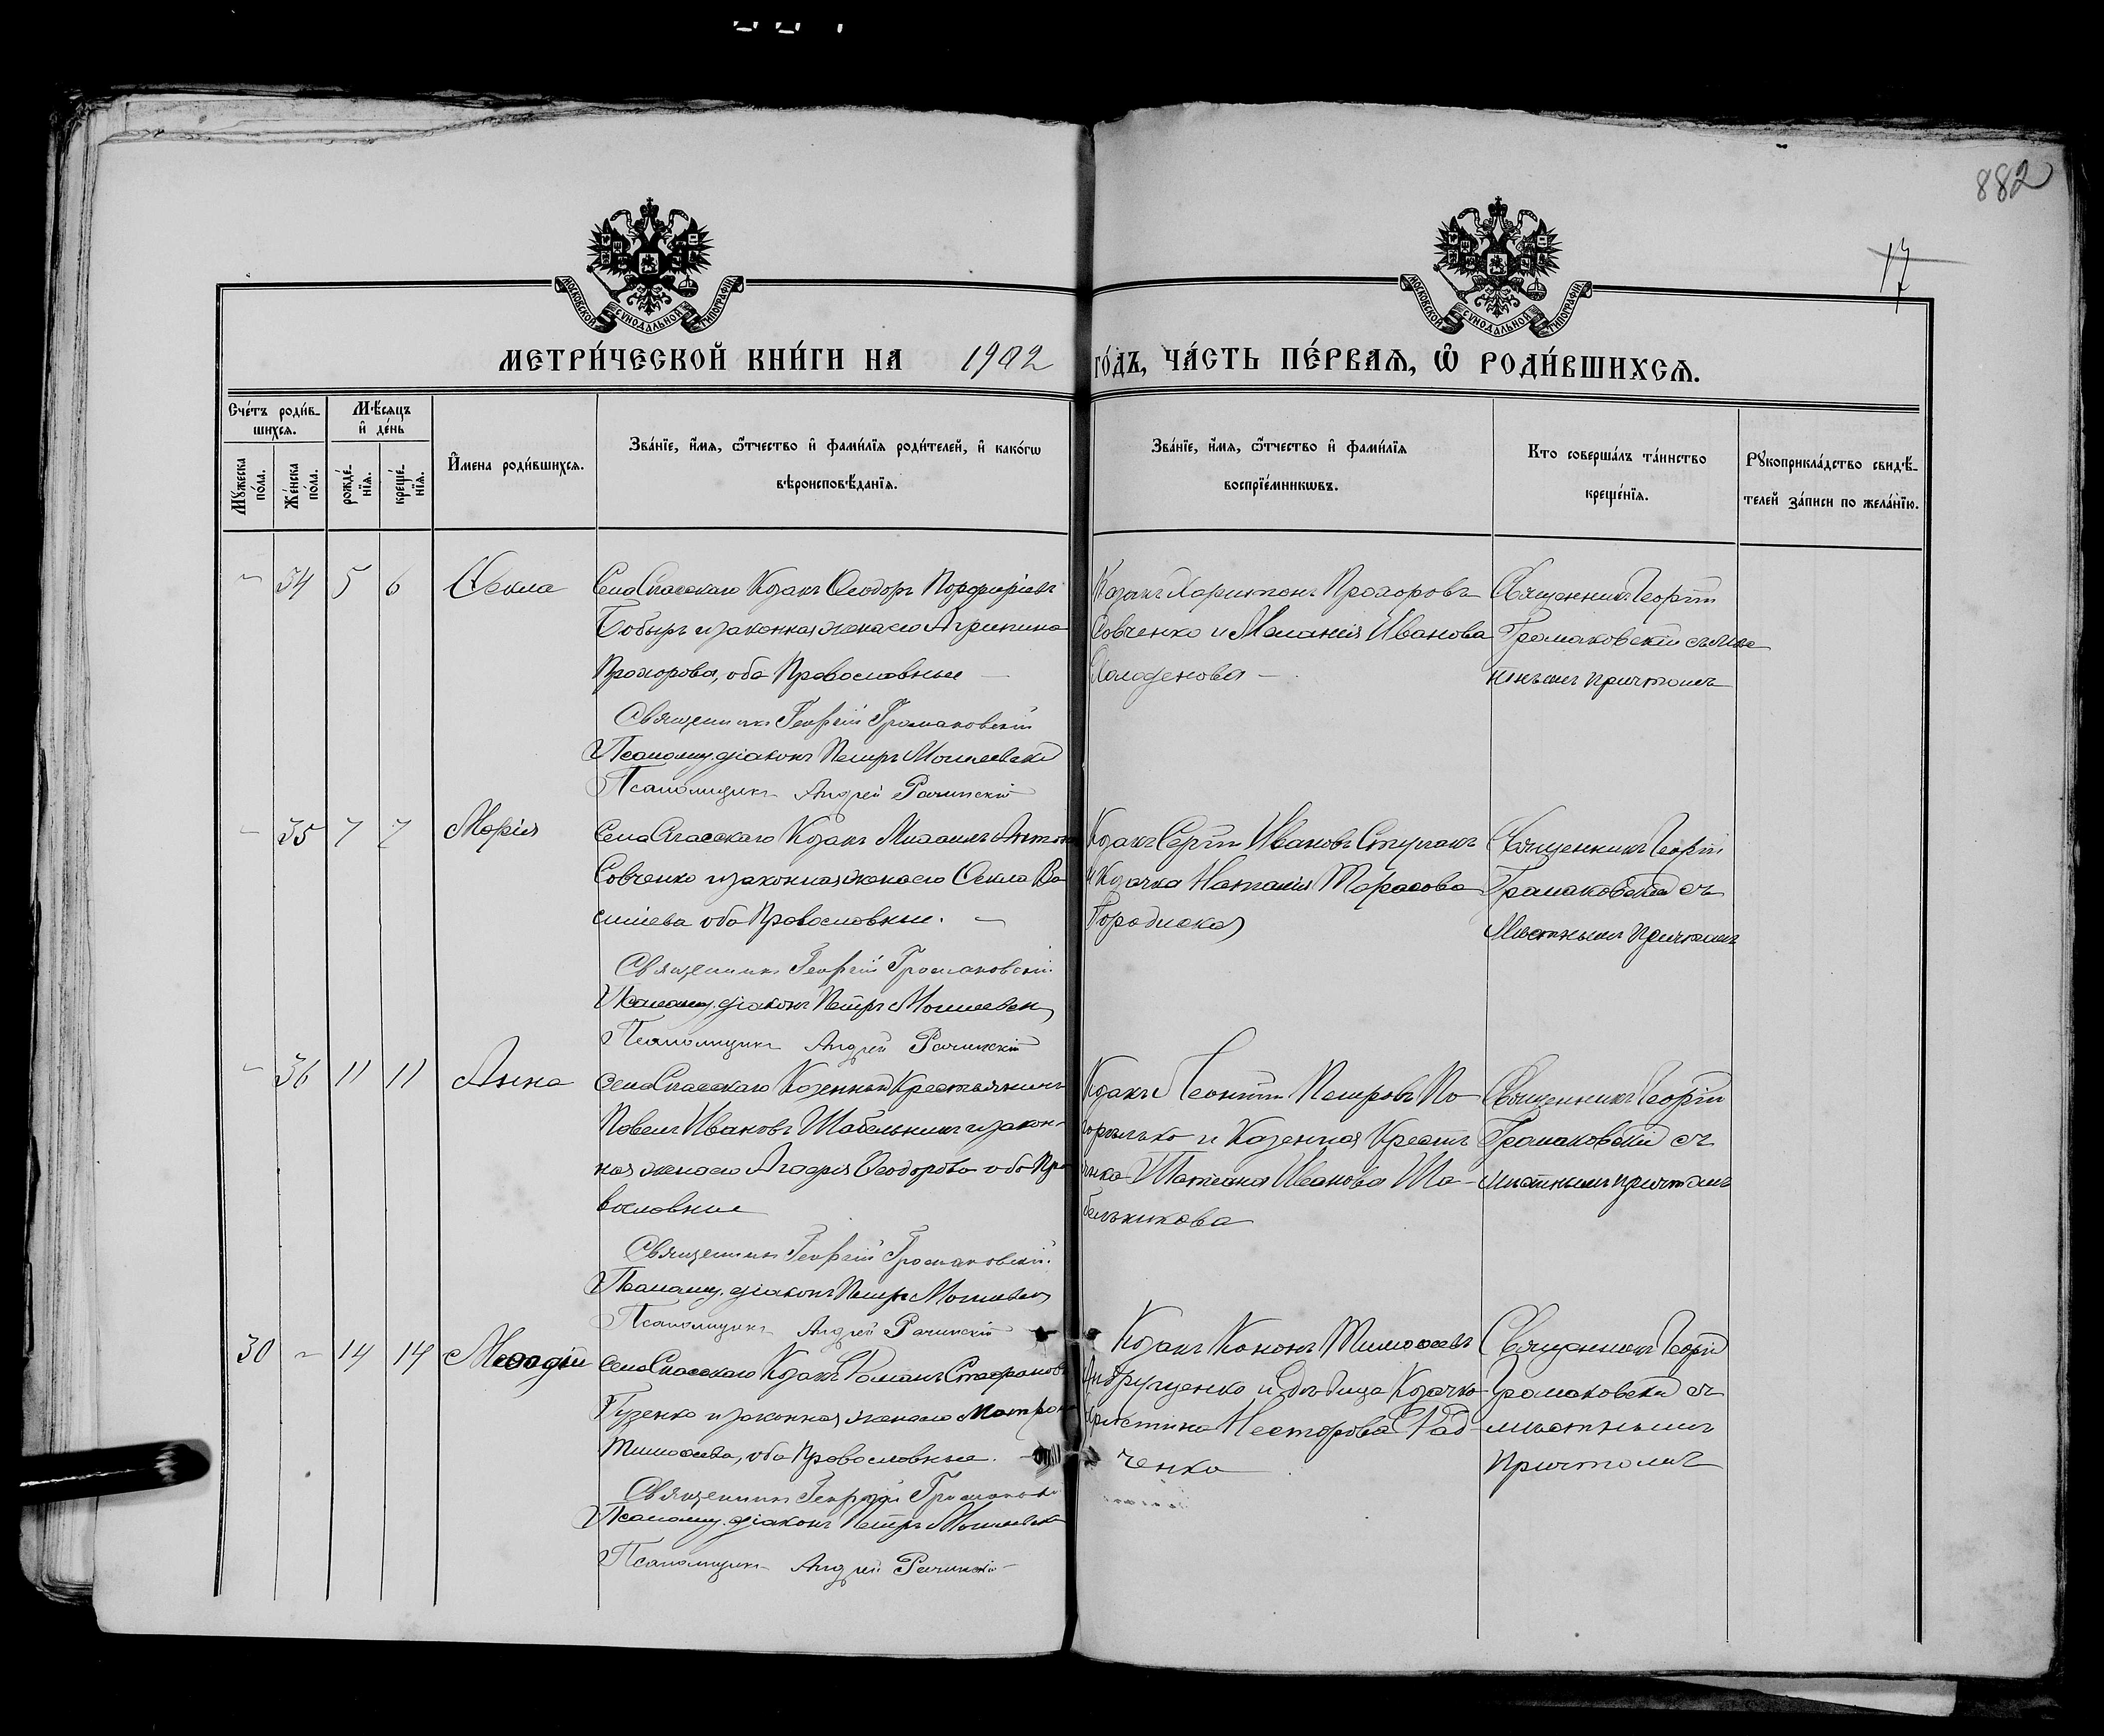 882
17
МОСКОВСКОЙ СѴНОДАЛЬНОЙ ТИПОГРАФІИ
МОСКОВСКОЙ СѴНОДАЛЬНОЙ ТИПОГРАФІИ
МЕТРИ́ЧЕСКОЙ КНИ́ГИ НА 1902 ГО́ДЪ, ЧА́СТЬ ПЕ́РВАѦ, Ѿ РОДИ́ВШИХСѦ.
Сче́тъ роди́в-
шихсѧ.
Мѣ́сѧцъ
и҆ де́нь
Мꙋ́жеска по́ла.
Же́нска по́ла.
рожде́-нїѧ.
креще́-нїѧ.
И҆мена роди́вшихсѧ.
Зва́нїе, и҆́мѧ, ѻ҆́тчество и҆ фами́лїѧ роди́телей, и҆ како́гѡ
вѣроисповѣ́данїѧ.
Зва́нїе, и҆́мѧ, ѻ҆́тчество и҆ фами́лїѧ
воспрїе́мникѡвъ.
Кто соверша́лъ та́инство
креще́нїѧ.
Рꙋкоприкла́дство свидѣ́-
телей за́писи по жела́нїю.
34 5 6 Ѳекла
Села Спасскаго Козакъ Ѳеодоръ Порфиріевъ
Бобырь и законная жена его Агрипина
Прохорова, оба Православные
Священникъ Георгій Громаковскій
Псаломщ. діаконъ Петръ Могилевскі
Псаломщикъ Андрей Рачинскій
Козакъ Харитонъ Прохоровъ
Совченко и Меланія Иванова
Холоденова
Священникъ Георгій
Громаковскій съ мѣс
тнымъ причтомъ
35 7 7 Марія
Села Спасскаго Козакъ Михаилъ Антон
Совченко и законная жена его Ѳекла Ва
силіева оба Православные.
Священникъ Георгій Громаковскій.
Псаломщ. діаконъ Петръ Могилевск
Псаломщикъ Андрей Рачинскій
Козакъ Сергій Ивановъ
и Козачка Наталія Тарасова
Городиская
Священникъ Георгій
Громаковскій съ
Мѣстнымъ Причтомъ
36 11 11 Анна
Села Спасскаго Казенный Крестьянинъ
Павелъ Ивановъ Шабельникъ и закон-
ная жена его Агафія Ѳеодорова оба Пра
вославные
Священникъ Георгій Громаковскій.
Псаломщ. діаконъ Петръ Могилевск
Псаломщикъ Андрей Рачинскій
Козакъ Леонтій Петровъ По-
горѣлько и Казенная Кресть
янка Татіана Иванова Ша-
бельникова
Священникъ Георгій
Громаковскій съ
мѣстнымъ причтомъ
30 14 14 Меѳодій
Села Спасскаго Козакъ Романъ Стефановъ
Гузенко и законная жена его Матрона
Тимоѳеева, оба Православные.
Священникъ Георгій Громаковскі
Псаломщ. діаконъ Петръ Могилевск
Псаломщикъ Андрей Рачинскій
Козакъ Кононъ Тимоѳеевъ
Андрущенко и вдовица Козачка
Христина Несторова Рад-
ченко
Священникъ Георгій
Громаковскій съ
мѣстнымъ
Причтомъ